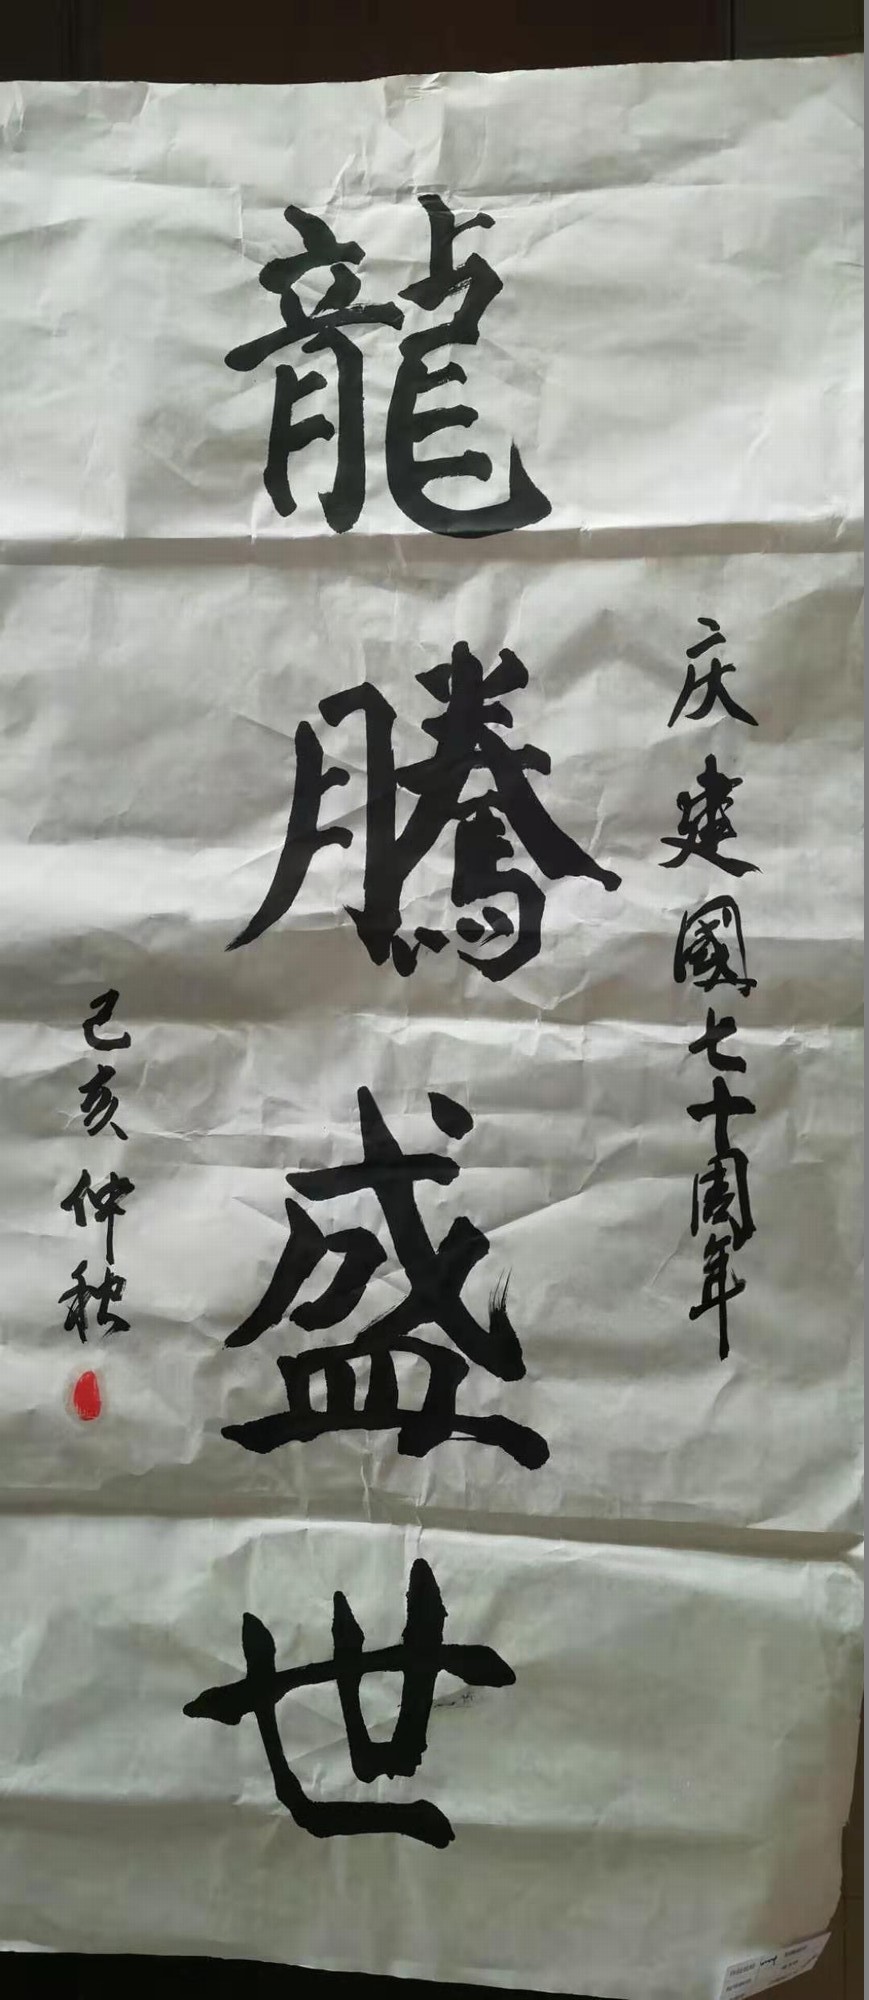 庆建國七十周年
龍騰盛世
己亥仲秋